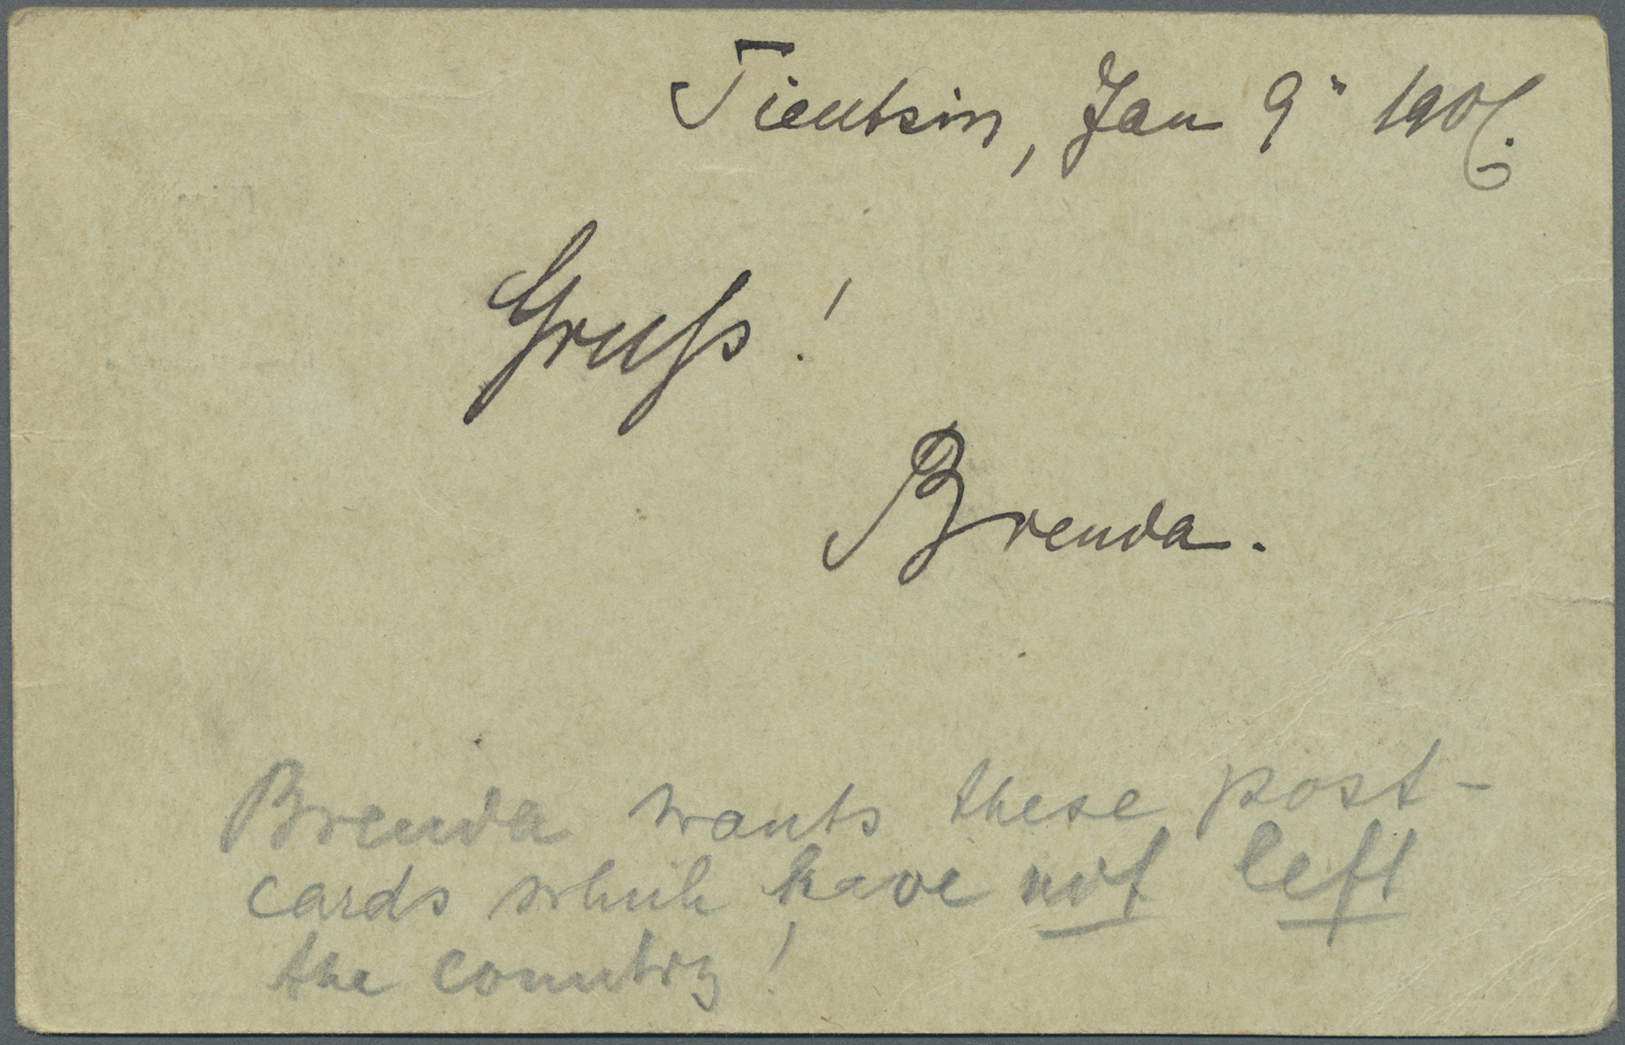 Tientsin, Jan 9" 1906.
Gruß!
Brenda.
Brenda wants these post-
cards which have not left
the country!